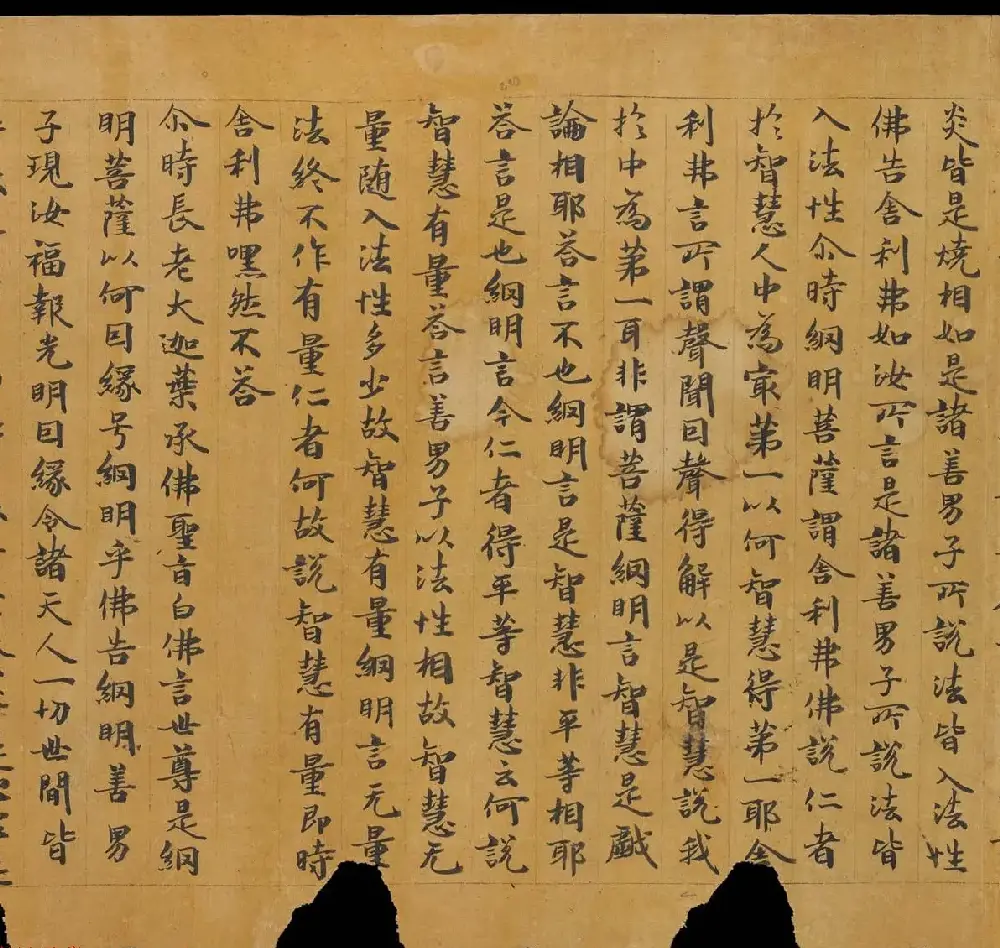 炎皆是燒相如是諸善男子所說法皆入法性
佛告舍利弗如汝所言是諸善男子所說法皆
入法性尒時網明菩薩謂舍利弗佛說仁者
於智慧人中為㝡第一以何智慧得第一耶舍
利弗言所謂聲聞因聲得解以是智慧說我
於中為第一耳非謂菩薩網明言智慧是戲
論相耶荅言不也網明言是智慧非平等相耶
荅言是也網明言今仁者得平等智慧云何說
智慧有量荅言善男子以法性相故智慧无
量随入法性多少故智慧有量網明言无量
法終不作有量仁者何故說智慧有量即時
舍利弗嘿然不荅
尒時長老大迦葉承佛聖旨白佛言世尊是網
明菩薩以何因緣号網明乎佛告網明善男
子現汝福報光明因緣令諸天人一切世間皆